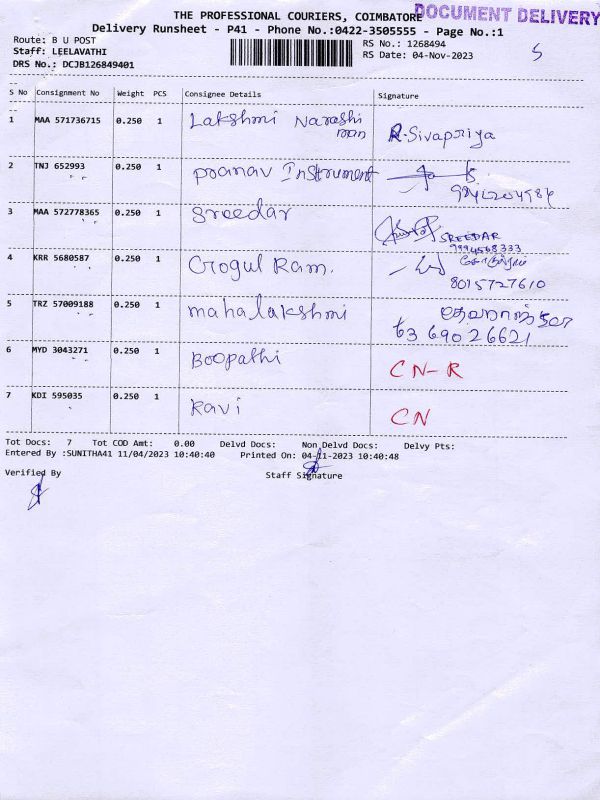 THE PROFESSIONAL COURIERS, COIMBATORE
DOCUMENT DELIVERY
Delivery Runsheet - P41 - Phone No.:0422-3505555 - Page No.:1
Route: B U POST
RS No.: 1268494
Staff: LEELAVATHI
RS Date: 04-Nov-2023
5
DRS No.: DCJB126849401
S No Consignment No Weight PCS Consignee Details Signature
1 MAA 571736715 0.250 1 Lakshmi Narashi
man
R. Sivapriya
2 TNJ 652993 0.250 1 pranav Instrument
3 MAA 572778365 0.250 1 Sreedar
SREEDAR
9994568333
4 KRR 5680587 0.250 1 Gogul Ram.
8015727610
5 TRZ 57009188 0.250 1 mahalakshmi
63 690 26621
6 MYD 3043271 0.250 1 Boopathi CN-R
7 KDI 595035 0.250 1 Ravi CN
Tot Docs: 7 Tot COD Amt: 0.00 Delvd Docs: Non Delvd Docs: Delvy Pts:
Entered By :SUNITHA41 11/04/2023 10:40:40 Printed On: 04-11-2023 10:40:48
Verified By Staff Signature